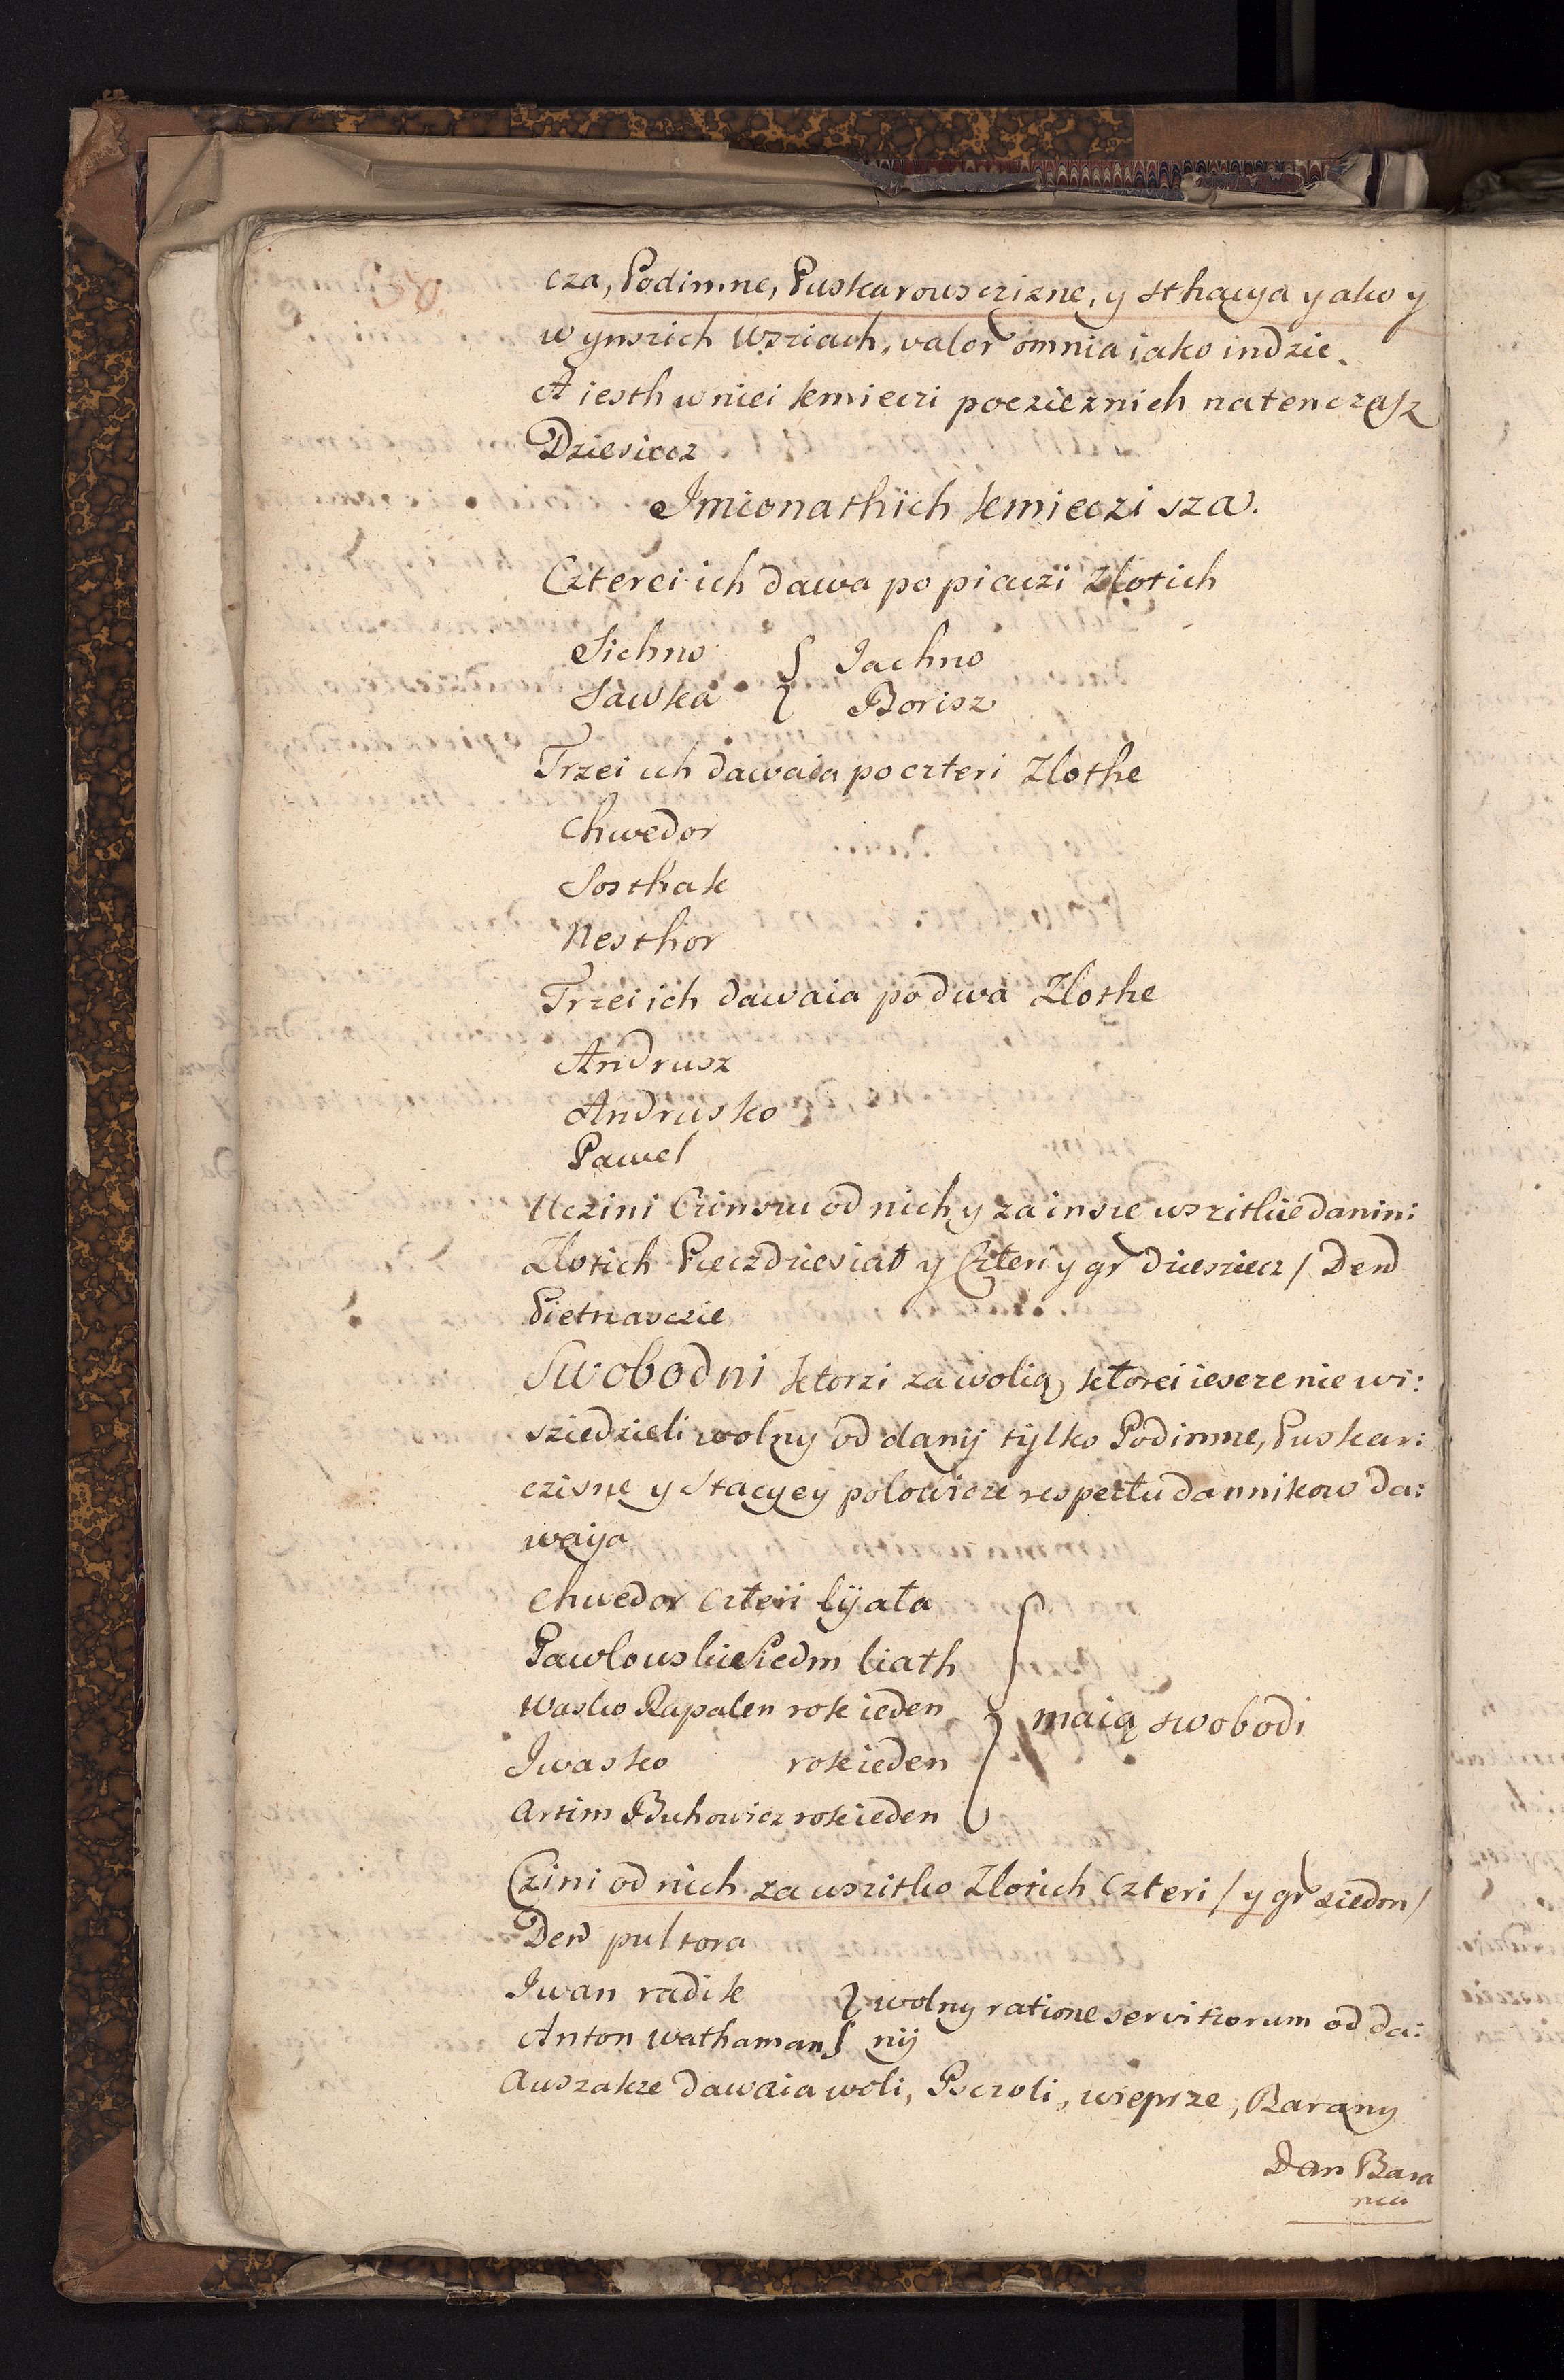 38
cza, Podimne, Puskarowsczizne, y sthacya yako y
w ynszich wsziach, valor omnia iako indzie.
A iesth w niei kmieczi poczieznich natenczasz
Dziesiecz
Imiona thich kmieczi sza.
Czterei ich dawa po piaczi Zlotich
Sichno } Jachno
Sawka } Borisz
Trzei ich dawaia po czteri Zlothe
Chwedor
Sosthak
Nesthor
Trzei ich dawaia po dwa Zlothe
Andrusz
Andrusko
Pawel
Uczini Czinszu od nich y za insze wszitkie danin:
Zlotich Pieczdziesiat y Czteri y gr dziesziecz / Den
Pietnasczie
Swobodni ktorzi za wolią ktorei iescze nie wi:
sziedzieli wolny od danij tylko Podimne, Puskar:
czisne y Stacyey polowicze respectu dannikow da:
waya
Chwedor czteri lijata
Pawlowskie Siedm liath
Wasko Kapalen rok ieden } maią swobodi
Iwasko rok ieden
Artim Buhowicz rok ieden
Czini od nich za wszitko Zlotich czteri / y gr siedm /
Den pultora
Iwan radik } wolny ratione servitiorum od da:
Anton wathaman } nij
Auszakze dawaia woli, Psczoli, wieprze, Barany
Dan Bara
nia